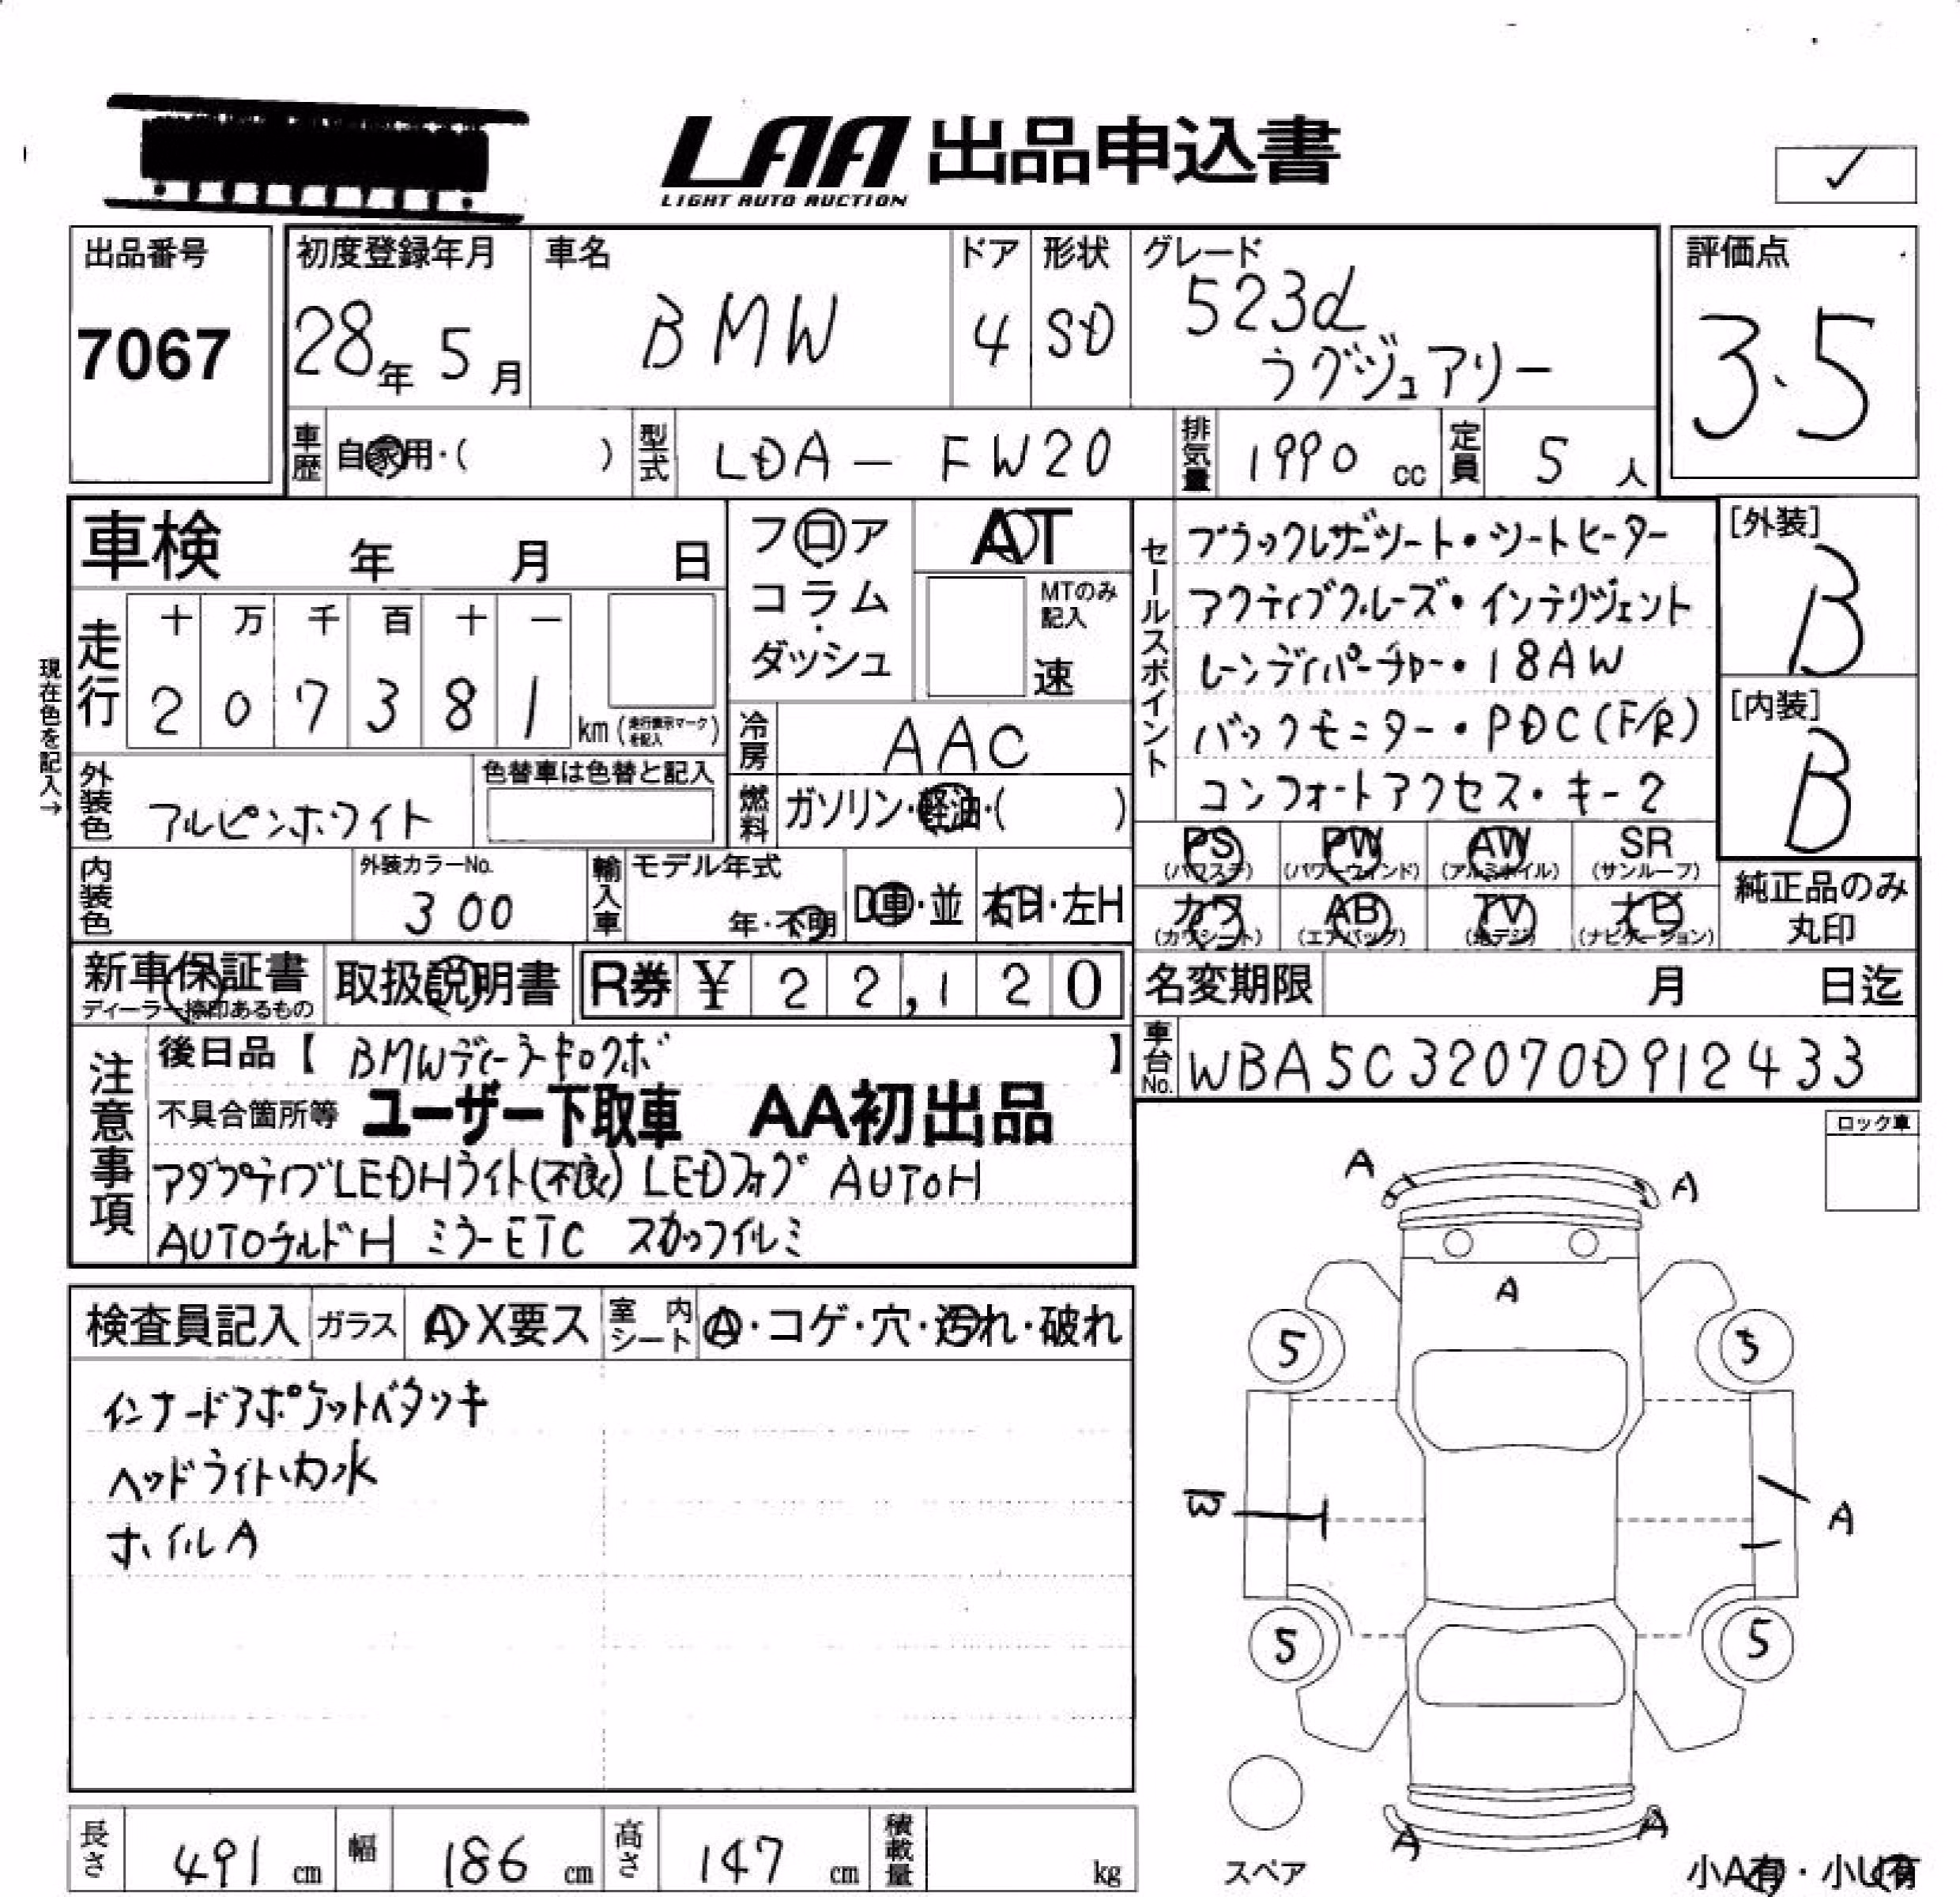 LAA 出品申込書
LIGHT AUTO AUCTION
✓
出品番号
7067
初度登録年月
28年 5月
車名
BMW
ドア
4
形状
SD
グレード
523d
ラグジュアリー
評価点
3.5
車歴 自家用・( )
型式 LDA - FW20
排気量 1990 cc
定員 5 人
車検 年 月 日
フロア
コラム
ダッシュ
AT
MTのみ記入
速
セールスポイント
ブラックレザーシート・シートヒーター
アクティブクルーズ・インテリジェント
レーンディパーチャー・18AW
バックモニター・PDC(F/R)
コンフォートアクセス・キー2
[外装]
B
[内装]
B
現在色を記入→
走行
十 万 千 百 十 一
2 0 7 3 8 1 km (走行表示マークを記入)
冷房 AAC
外装色 アルピンホワイト
色替車は色替と記入
燃料 ガソリン・軽油・( )
内装色
外装カラーNo.
300
輸入車
モデル年式
年・不明
D車・並
右H・左H
PS (パワステ)
PW (パワーウインド)
AW (アルミホイル)
SR (サンルーフ)
カワ (カワシート)
AB (エアバッグ)
TV (地デジ)
ナビ (ナビゲーション)
純正品のみ丸印
新車保証書
ディーラー捺印あるもの
取扱説明書
R券 ¥ 2 2 , 1 2 0
名変期限 月 日迄
車台No. WBA5C32070D912433
注意事項
後日品【 BMWディーラーキロクボ 】
不具合箇所等 ユーザー下取車 AA初出品
アダプティブLEDHライト(不良) LEDフォグ AUTOH
AUTOチルドH ミラーETC スカッフイルミ
ロック車
検査員記入
ガラス A・X要ス
室内シート A・コゲ・穴・汚れ・破れ
インナードアポケットベタツキ
ヘッドライト内水
ホイルA
A
A
A
5
5
W
A
5
5
A
A
スペア
小A有・小U有
長さ 491 cm
幅 186 cm
高さ 147 cm
積載量 kg